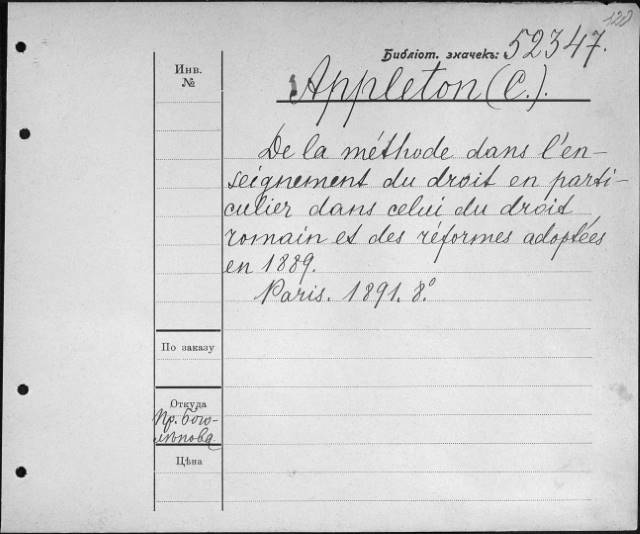 128
Библіот. значекъ: 52347.
Инв.
№
Appleton (C.).
De la méthode dans l'en-
seignement du droit en parti-
culier dans celui du droit
romain et des réformes adoptées
en 1889.
Paris. 1891. 8.º
По заказу
Откуда
Пр. Бого-
лѣпова
Цѣна